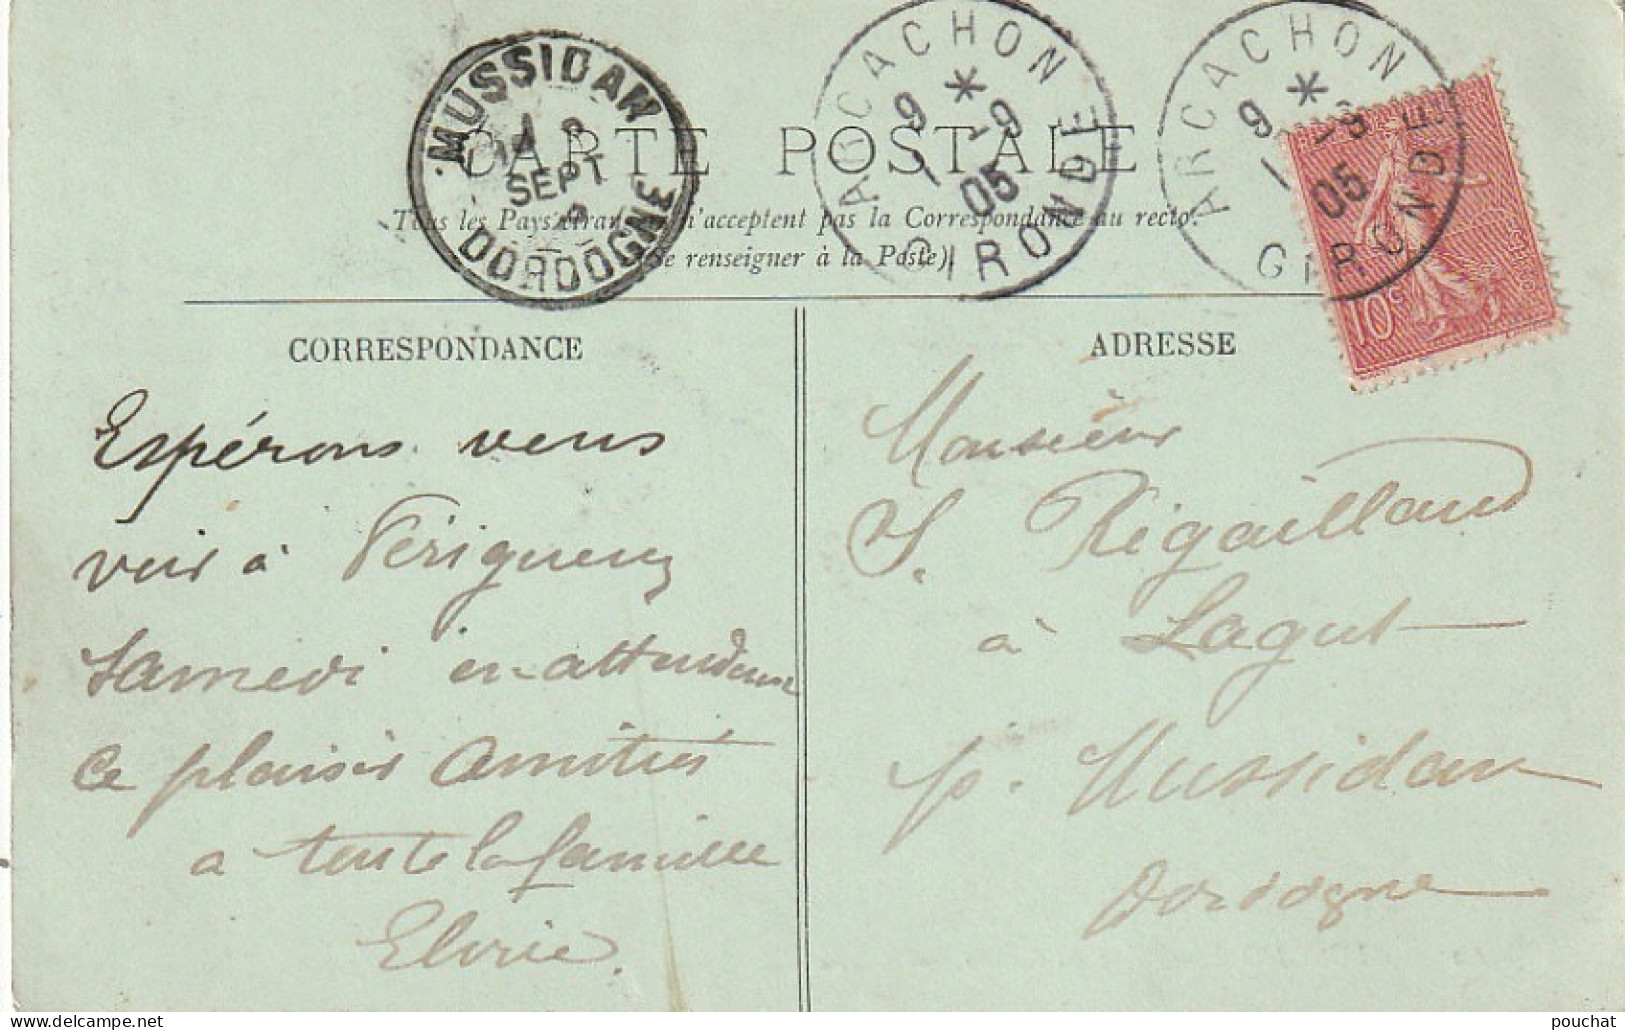 MUSSIDAN
SEPT
DORDOGNE
ARCACHON
9 * -9
05
GIRONDE
ARCACHON
9 *
05
GIRONDE
10c
CARTE POSTALE
Tous les Pays étrangers n'acceptent pas la Correspondance au recto.
(Se renseigner à la Poste).
CORRESPONDANCE
Espérons vous
voir à Périgueux
Samedi en attendant
ce plaisir amitiés
a toute la famille
Elorie.
ADRESSE
Monsieur
S. Rigaillaud
à Lagut
p. Mussidan
Dordogne
pouchat